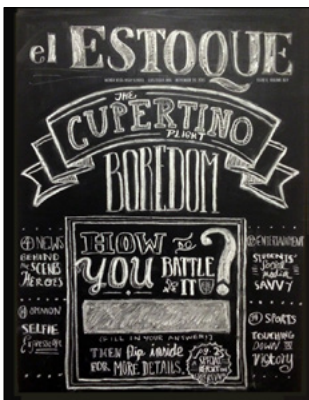 el ESTOQUE
THE
CUPERTINO
PLIGHT
BOREDOM
HOW TO
YOU BATTLE
IT?
(FILL IN YOUR ANSWER!)
THEN flip inside
FOR MORE DETAILS.
SPECIAL
REPORT
NEWS
BEHIND
the SCENES
HEROES
OPINION
SELFIE
Expression
ENTERTAINMENT
STUDENTS'
Social
media
SAVVY
SPORTS
TOUCHING
DOWN TO
Victory